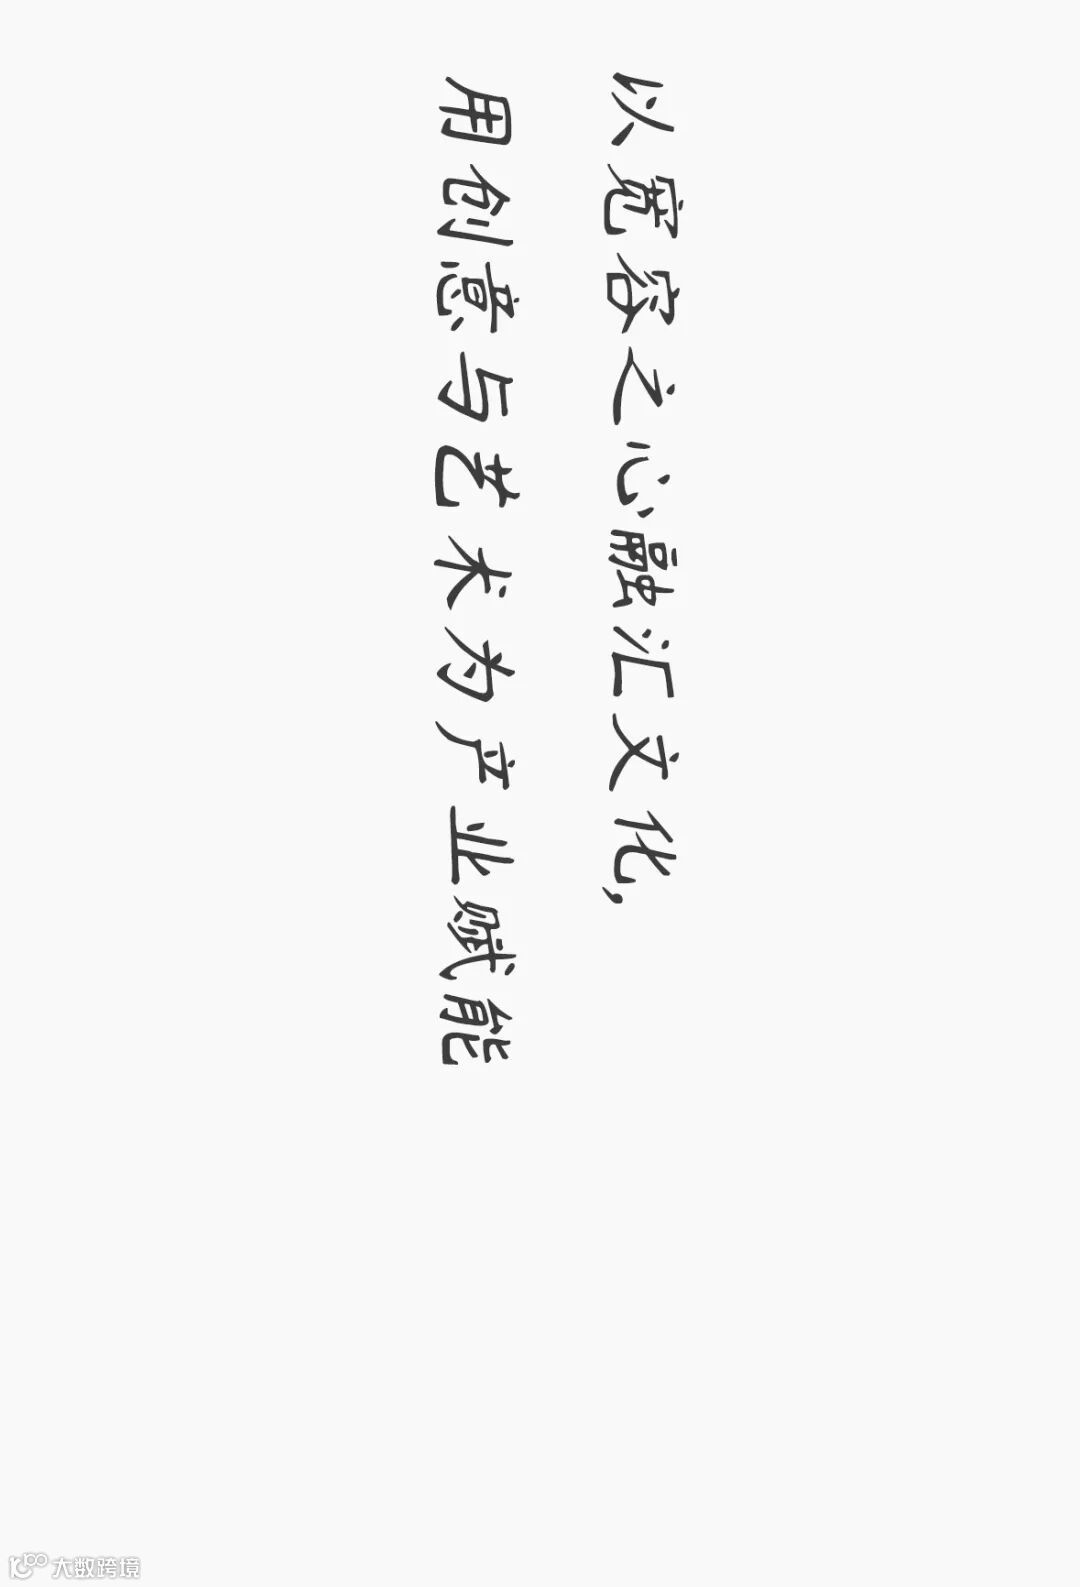 以宽容之心融汇文化,
用创意与艺术为产业赋能
大数跨境